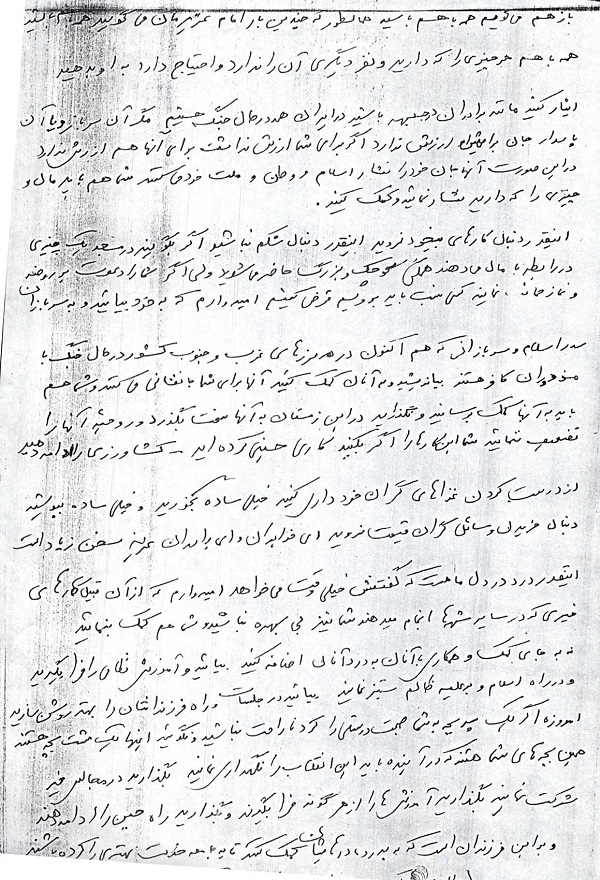 باز هم می‌گویم همه با هم باشید همانطور که چندین بار امام عزیزمان می‌گویند همه با هم باشید
همه با هم هر چیزی را که دارید و نفر دیگری آن را ندارد و احتیاج دارد به او بدهید
ایثار کنید مانند برادران در جبهه باشید در ایران همه در حال جنگ هستیم مگر آن سرباز و یا آن
پاسدار جان برایش ارزش ندارد اگر برای شما ارزش نداشت برای آنها هم ارزش ندارد
در این صورت آنها جان خود را نثار اسلام و وطن و ملت خود می‌کنند شما هم باید مال و
چیزی را که دارید نثار نمائید و کمک کنید .
اینقدر دنبال کارهای بیخود نروید اینقدر دنبال شکم نباشید اگر بگویند در مسجد یک چیزی
در رابطه با مال می‌دهند همگی کوچک و بزرگ حاضر می‌شوید ولی اگر شما را دعوت به روضه
و نماز خانه ، نمایند کسی نیست باید بروسیم قرض کنیم امیدوارم که به خود بیائید و به سربازان
صدر اسلام و سربازانی که هم اکنون در مرزهای غرب و جنوب کشور در حال جنگ با
مزدوران کافر هستند بیاندیشید و به آنان کمک کنید آنها برای شما جانفشانی می‌کنند و شما هم
باید به آنها کمک برسانید و نگذارید در این زمستان به آنها سخت بگذرد و روحیه آنها را
تضعیف ننمائید شما این کارها را اگر بکنید کاری حسینی کرده اید - کشاورزی را ادامه دهید
از درست کردن غذاهای گران خودداری کنید خیلی ساده بخورید و خیلی ساده بپوشید
دنبال خریدن وسائل گران قیمت نروید ای خواهران و ای برادران عزیز سخن زیاد است
اینقدر درد در دل ما هست که گفتنش خیلی وقت می‌خواهد امیدوارم که از آن قبیل کارهای
خیری که در سایر شهرها انجام میدهند شما نیز بی بهره نباشید و شما هم کمک بنمائید
نه به جای کمک و همکاری با آنان به درد آنان اضافه کنید بیائید و آموزش نظامی را فرا بگیرید
و در راه اسلام و بر علیه ظالم ستیز نمایند بیائید در جلسات و راه فرزندانتان را بهتر روشن سازید
امروزه اگر یک پسر بچه به شما صحبت درستی را کرد ناراحت نباشید و نگوئید اینها یک مشت بچه هستند
همین بچه های شما هستند که در آینده باید این انقلاب را نگهداری نمایند بگذارید در مجالس خیر
شرکت نمایند بگذارید آموزش ها را از هر گونه فرا بگیرند و بگذارید راه حسین را ادامه دهند
و بر این فرزندان است که به پدر و مادرهایشان کمک کنند تا به جامعه خدمت بهتری را کرده باشند